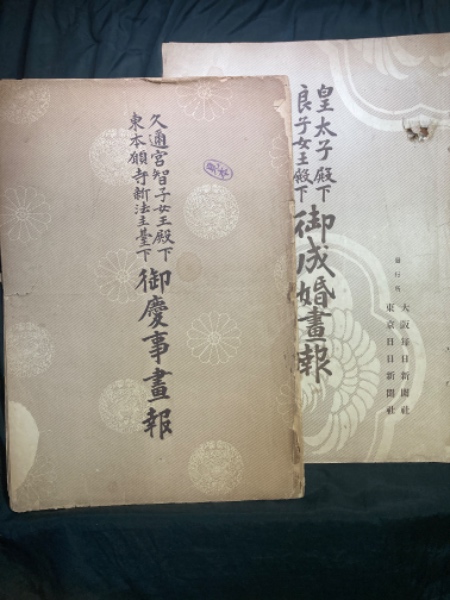 皇太子殿下
良子女王殿下
御成婚畫報
發行所
大阪每日新聞社
東京日日新聞社
久邇宮智子女王殿下
東本願寺新法主臺下
御慶事畫報